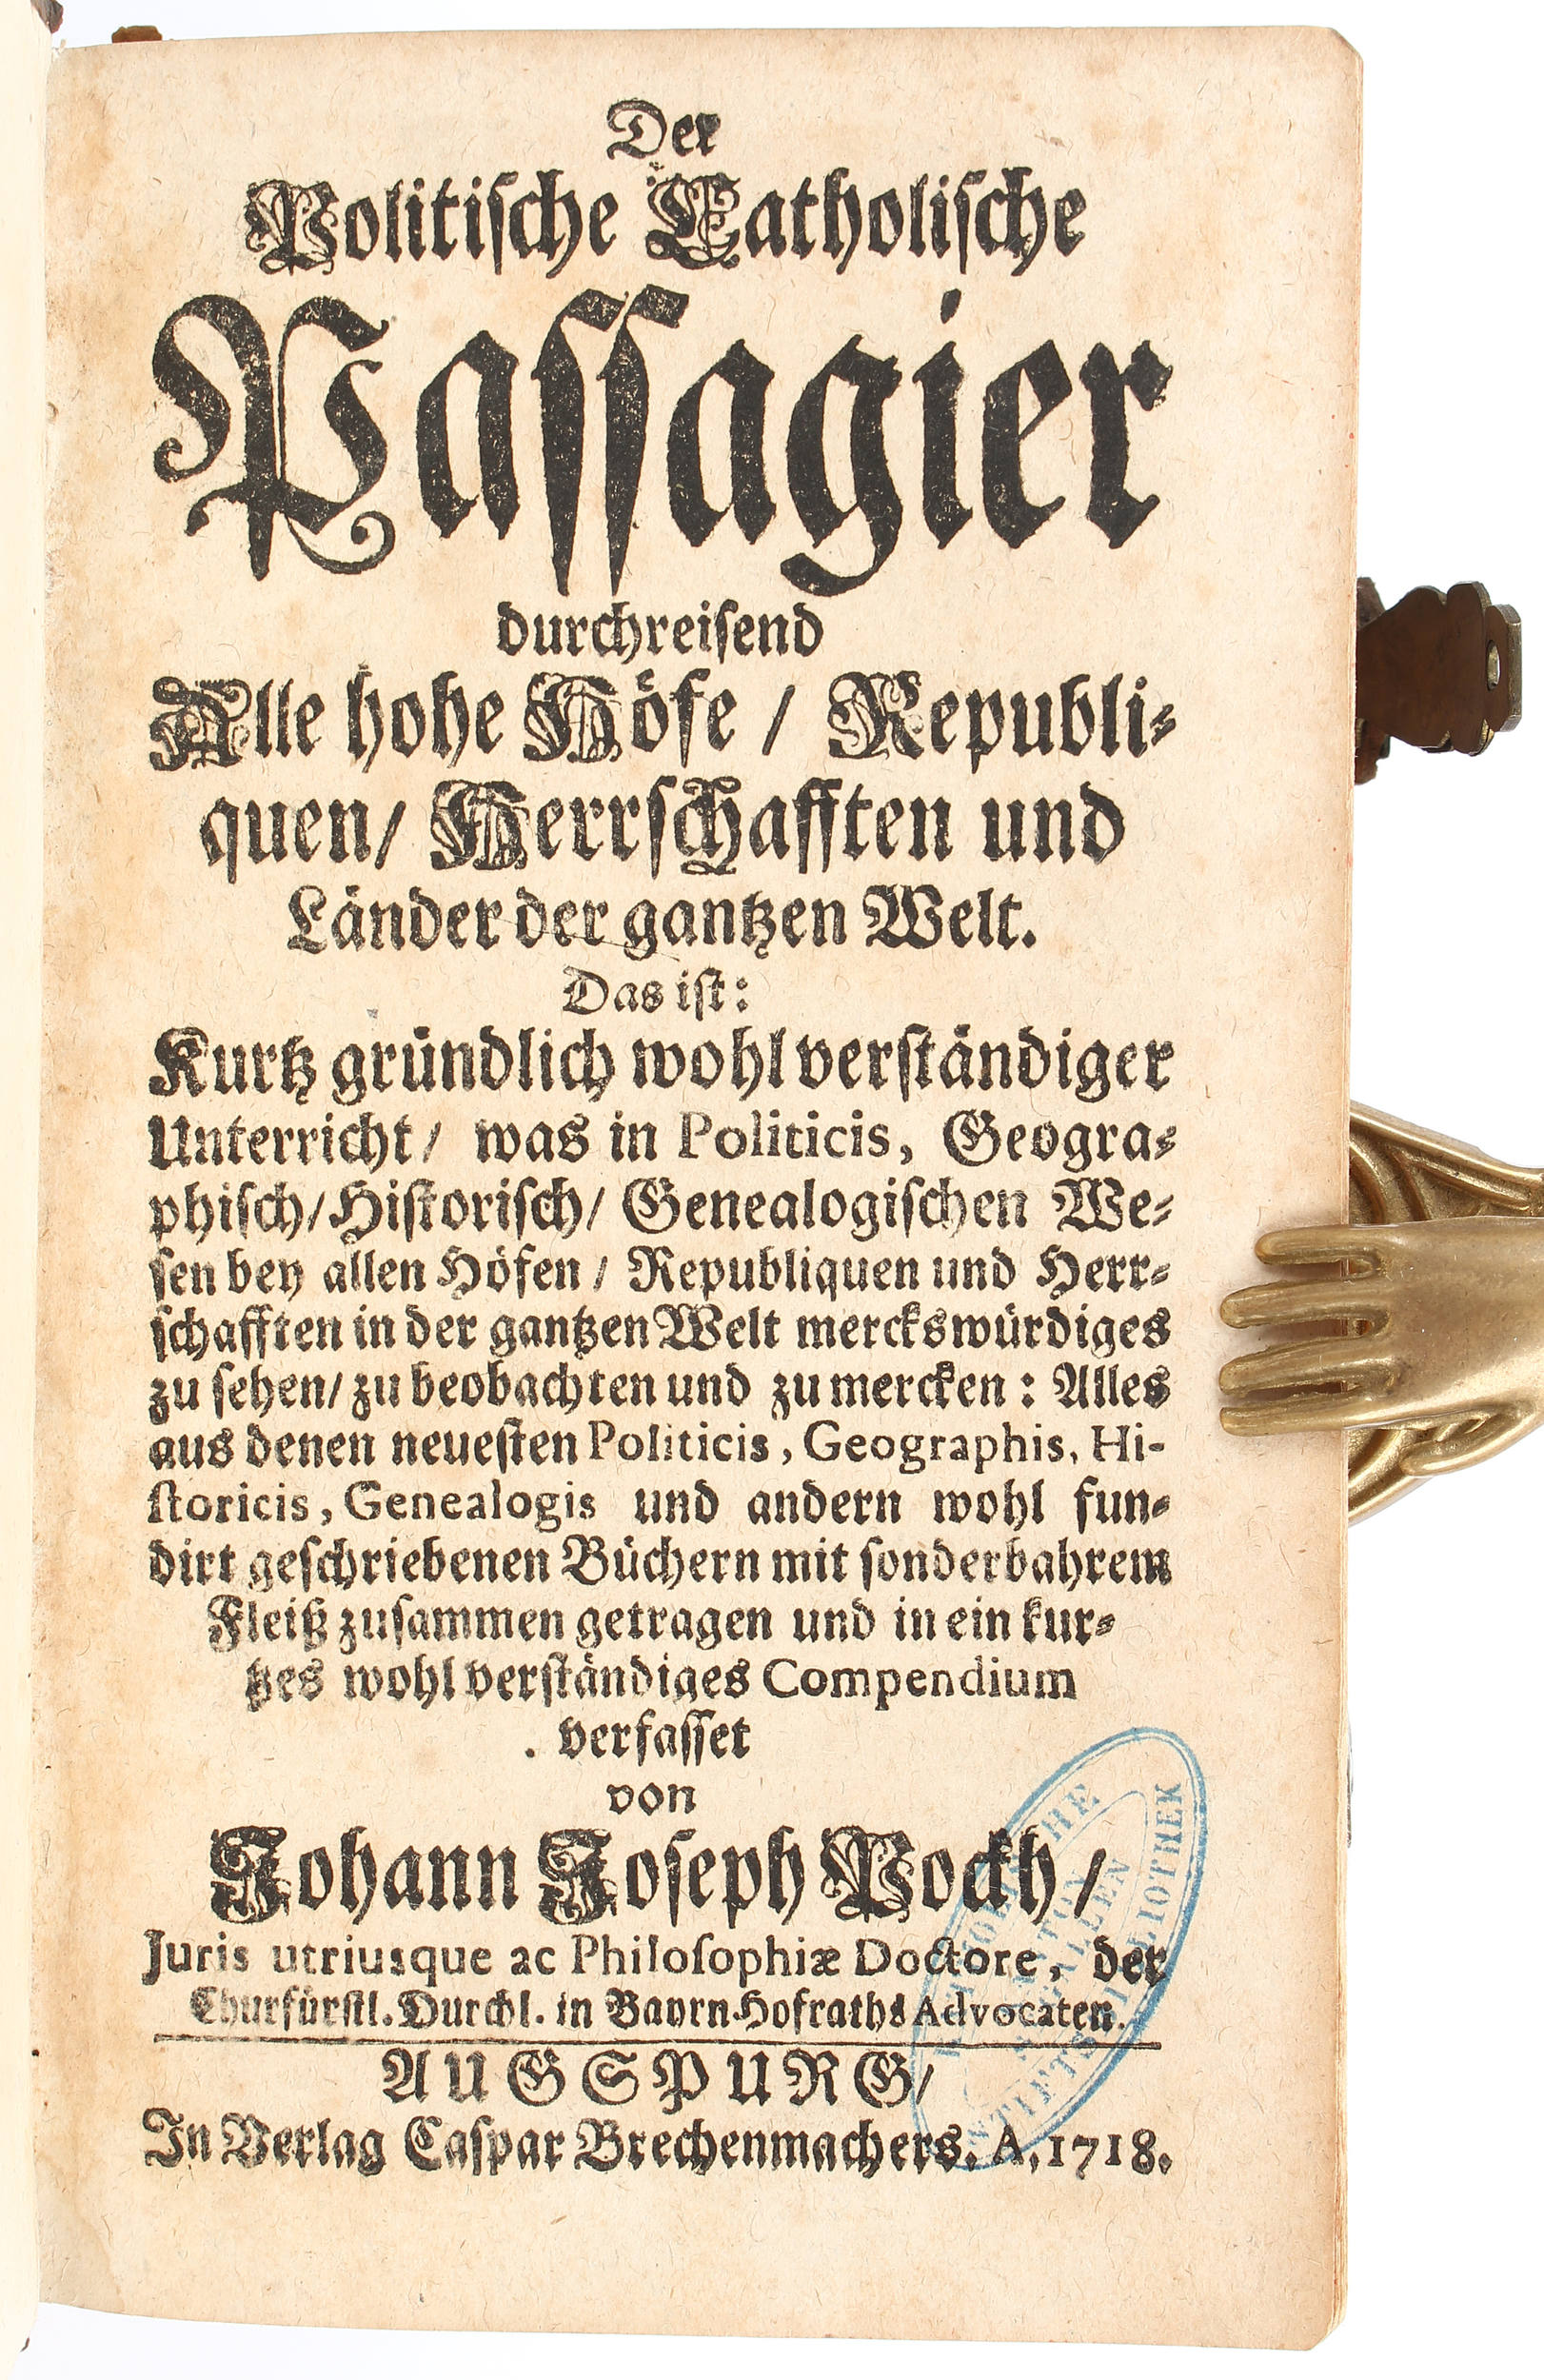 Der
Politische Catholische
Passagier
durchreisend
Alle hohe Höfe / Republi-
quen / Herrschafften und
Länder der gantzen Welt.
Das ist:
Kurtz gründlich wohl verständiger
Unterricht / was in Politicis, Geogra-
phisch / Historisch / Genealogischen We-
sen bey allen Höfen / Republiquen und Herr-
schafften in der gantzen Welt merckswürdiges
zu sehen / zu beobachten und zu mercken: Alles
aus denen neuesten Politicis, Geographis, Hi-
storicis, Genealogis und andern wohl fun-
dirt geschriebenen Büchern mit sonderbahrem
Fleiß zusammen getragen und in ein kur-
tzes wohl verständiges Compendium
verfasset
von
Johann Joseph Pockh /
Juris utriusque ac Philosophiæ Doctore, der
Churfürstl. Durchl. in Bayrn Hofraths Advocaten.
AUGSPURG /
In Verlag Caspar Brechenmachers. A. 1718.